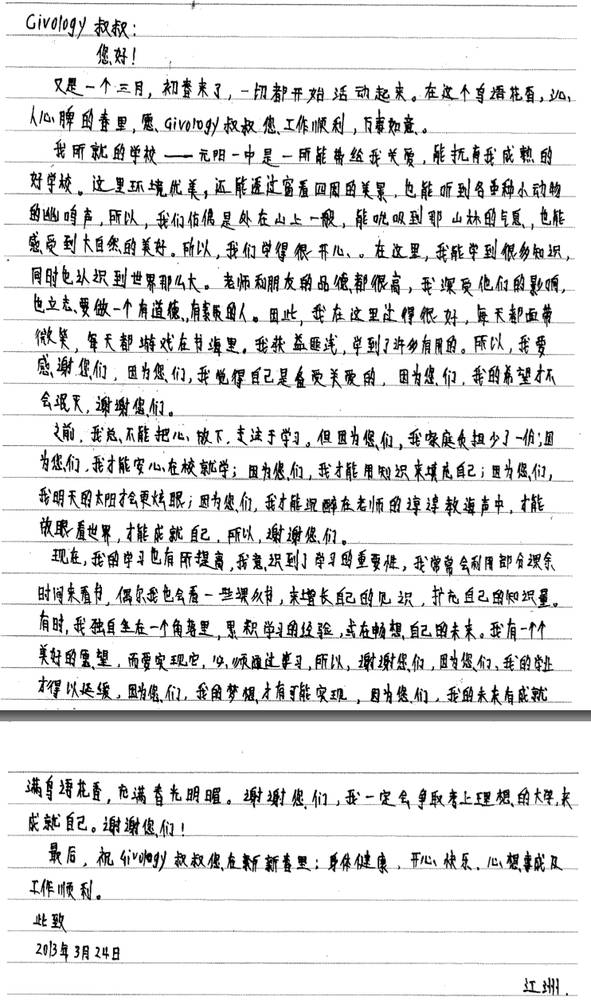 Givology 叔叔：
您好！
又是一个三月，初春来了，一切都开始活动起来。在这个鸟语花香，沁
人心脾的春里，愿 Givology 叔叔您工作顺利，万事如意。
我所就的学校——元阳一中是一所能带给我关爱，能抚育我成熟的
好学校。这里环境优美，还能透过窗看四周的美景，也能听到各种小动物
的幽鸣声，所以，我们仿佛是处在山上一般，能呼吸到那山林的气息，也能
感受到大自然的美好。所以，我们学得很开心。在这里，我能学到很多知识，
同时也认识到世界那么大。老师和朋友的品德都很高，我深受他们的影响，
也立志要做一个有道德，有素质的人。因此，我在这里过得很好，每天都面带
微笑，每天都游戏在书海里。我获益匪浅，学到了许多有用的。所以，我要
感谢你们，因为您们，我觉得自己是备受关爱的，因为您们，我的希望才不
会泯灭，谢谢您们。
之前，我总不能把心放下，专注于学习。但因为您们，我家庭负担少了一份；因
为您们，我才能安心在校就学；因为您们，我才能用知识来填充自己；因为您们，
我明天的太阳才会更炫眼；因为您们，我才能沉醉在老师的谆谆教诲声中，才能
放眼看世界，才能成就自己，所以，谢谢您们。
现在，我的学习也有所提高，我意识到了学习的重要性，我常常会利用部分课余
时间来看书，偶尔我也会看一些课外书，来增长自己的见识，扩充自己的知识量。
有时，我独自坐在一个角落里，累积学习的经验，或在畅想自己的未来。我有一个个
美好的愿望，而要实现它，必须通过学习，所以，谢谢您们，因为您们，我的学业
才得以延续，因为您们，我的梦想才有可能实现，因为您们，我的未来有成就
满鸟语花香，充满春光明媚。谢谢您们，我一定会争取考上理想的大学，来
成就自己。谢谢您们！
最后，祝 Givology 叔叔您在新新春里：身体健康，开心快乐，心想事成及
工作顺利。
此致
2013年3月24日
江洲.